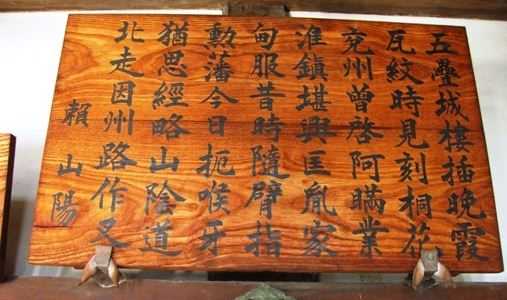 五疊城樓插晩霞
瓦紋時見刻桐花
兗州曾啓阿瞞業
淮鎮堪興匡胤家
甸服昔時隨臂指
勳藩今日扼喉牙
猶思經略山陰道
北走因州路作叉
賴山陽